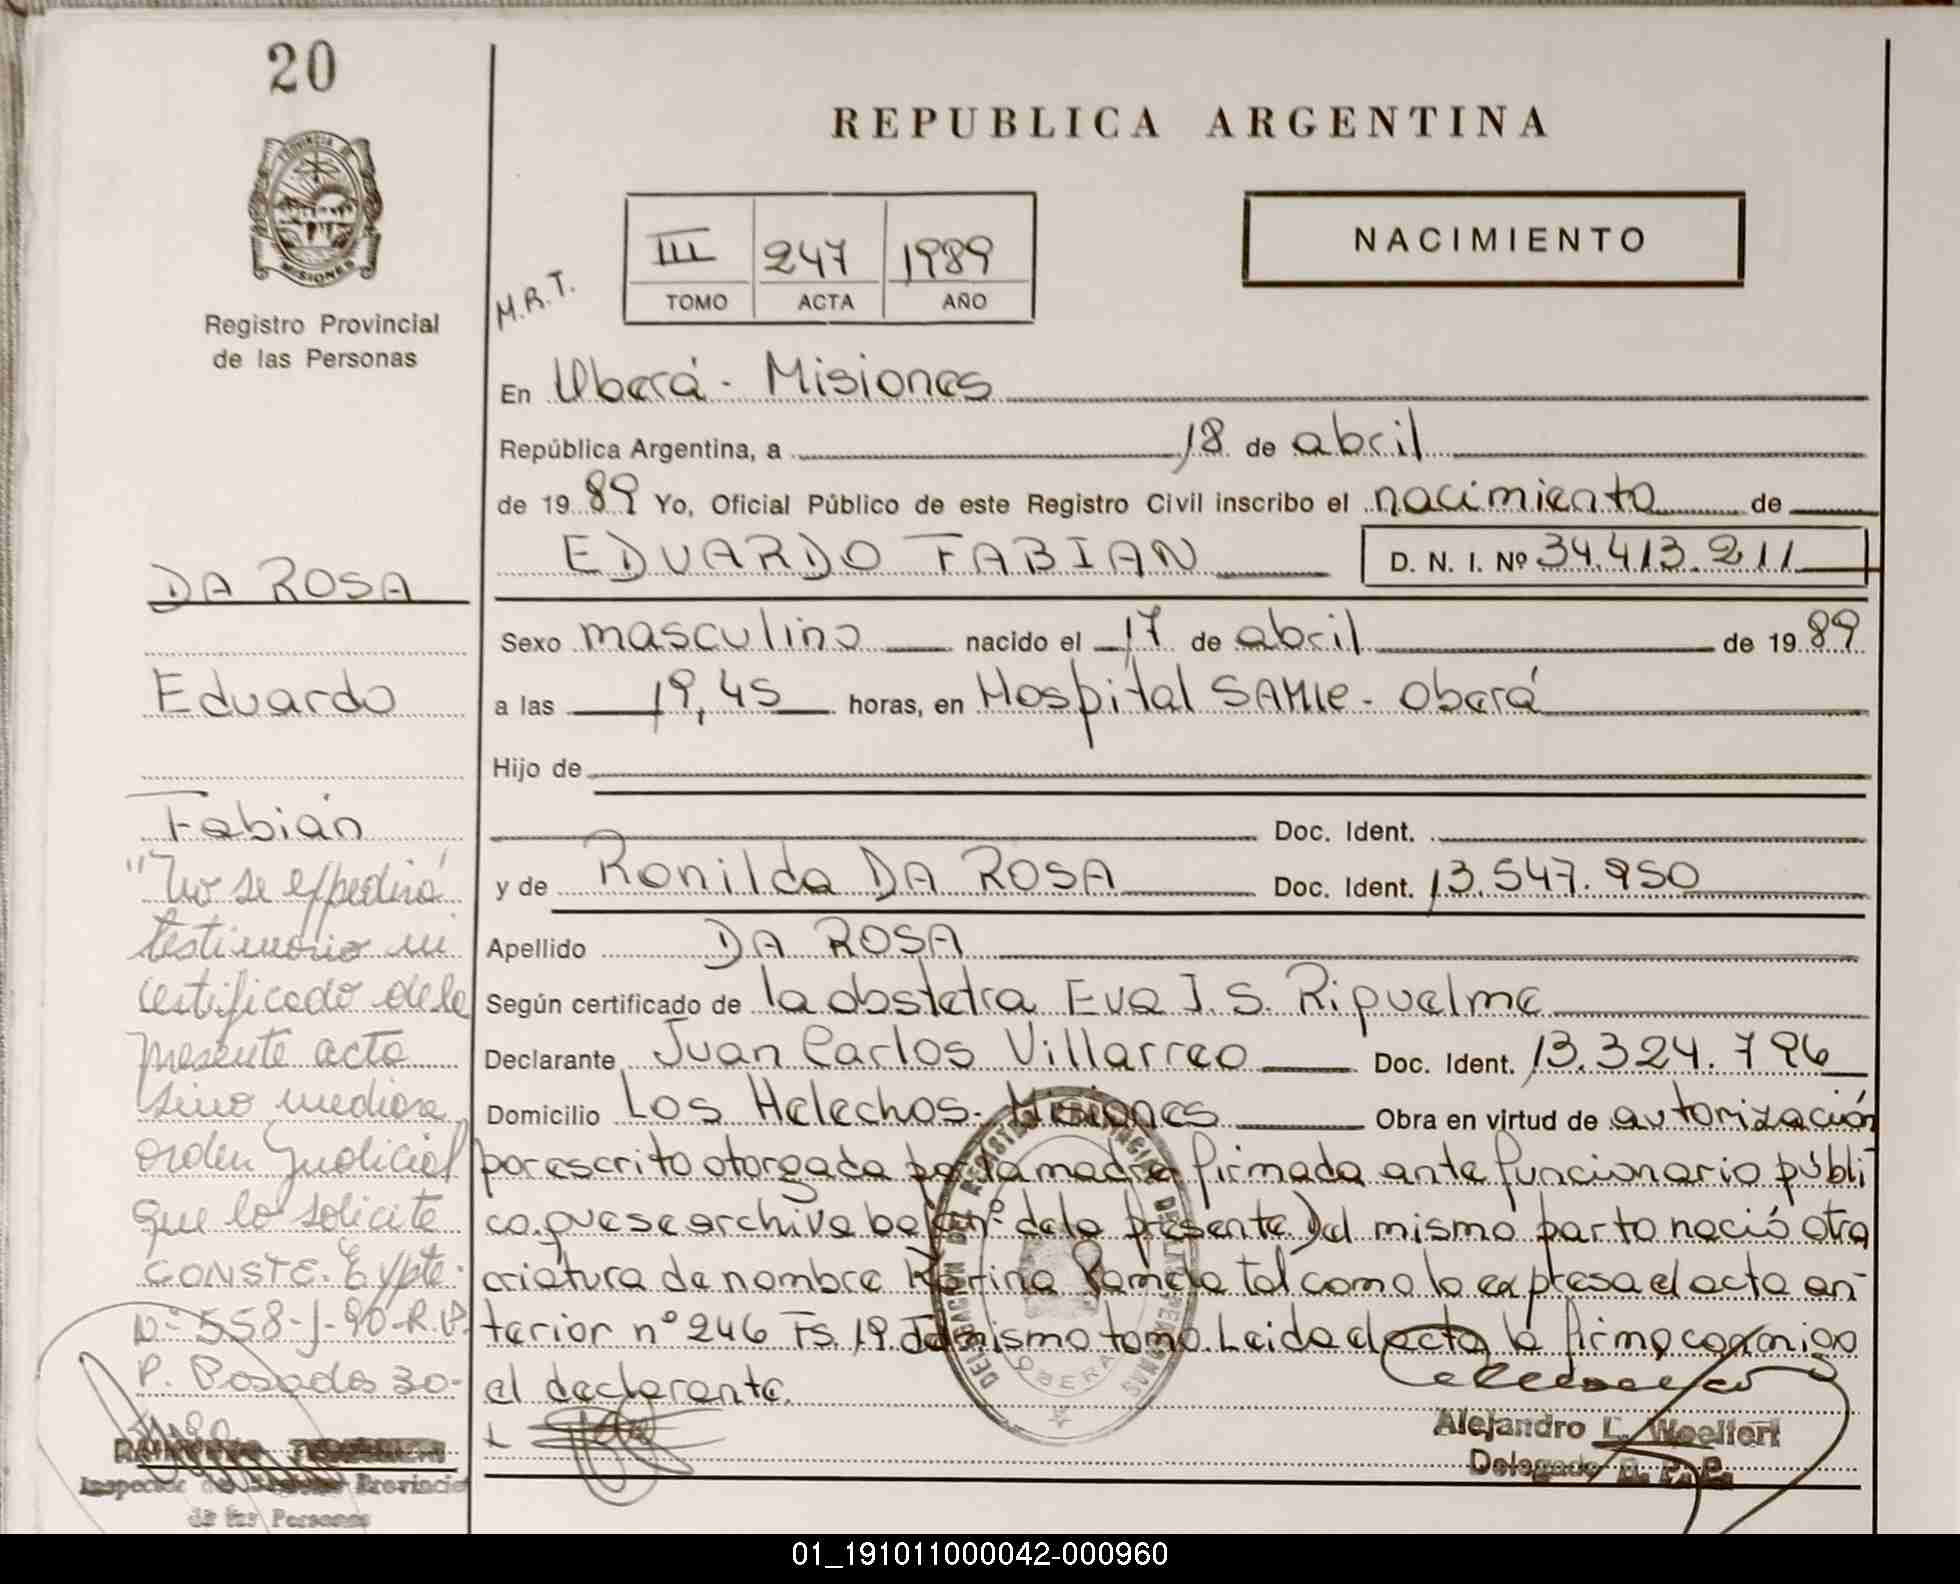 20
PROVINCIA DE
MISIONES
Registro Provincial
de las Personas
REPUBLICA ARGENTINA
NACIMIENTO
III 247 1989
TOMO ACTA AÑO
M.R.T.
En Oberá - Misiones
República Argentina, a 18 de abril
de 19 89 Yo, Oficial Público de este Registro Civil inscribo el nacimiento de
EDUARDO FABIAN D. N. I. Nº 34.413.211
Sexo masculino nacido el 17 de abril de 19 89
a las 19,45 horas, en Hospital SAMIC - Oberá
Hijo de
Doc. Ident.
y de Ronilda DA ROSA Doc. Ident. 13.547.950
Apellido DA ROSA
Según certificado de la obstetra Eva J. S. Riquelme
Declarante Juan Carlos Villarreo Doc. Ident. 13.324.796
Domicilio Los Helechos - Misiones Obra en virtud de autorización
por escrito otorgada por la madre firmada ante funcionario públi
co que se archiva bajo nº de la presente. Del mismo parto nació otra
criatura de nombre Karina Pamela tal como lo expresa el acta an-
terior nº 246 Fs. 19 del mismo tomo. Leida el acta la firma conmigo
el declarante.
Alejandro L. Woelfert
Delegado R. P. P.
DA ROSA
Eduardo
Fabián
"No se expedirá
testimonio ni
certificado de la
presente acta
sino mediara
orden Judicial
que lo solicite
CONSTE. Expte.
Nº 558-J-90-R.P.
P. Posadas 30-
Inspector Provincial
de las Personas
DELEGACION DEL REGISTRO PROVINCIAL DE LAS PERSONAS
OBERA
01_191011000042-000960